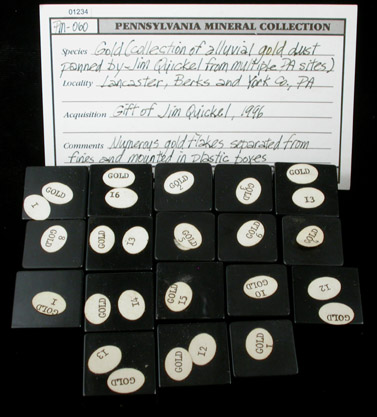 01234
PM-060
PENNSYLVANIA MINERAL COLLECTION
Species Gold (collection of alluvial gold dust
panned by Jim Quickel from multiple PA sites)
Locality Lancaster, Berks and York Co, PA
Acquisition Gift of Jim Quickel, 1996
Comments Numerous gold flakes separated from
fines and mounted in plastic boxes
GOLD 1
GOLD 16
GOLD
GOLD
GOLD 13
GOLD 8
GOLD 13
GOLD
GOLD 6
GOLD
GOLD 1
GOLD 14
GOLD 15
GOLD 10
GOLD 12
GOLD 13
GOLD 12
GOLD 1